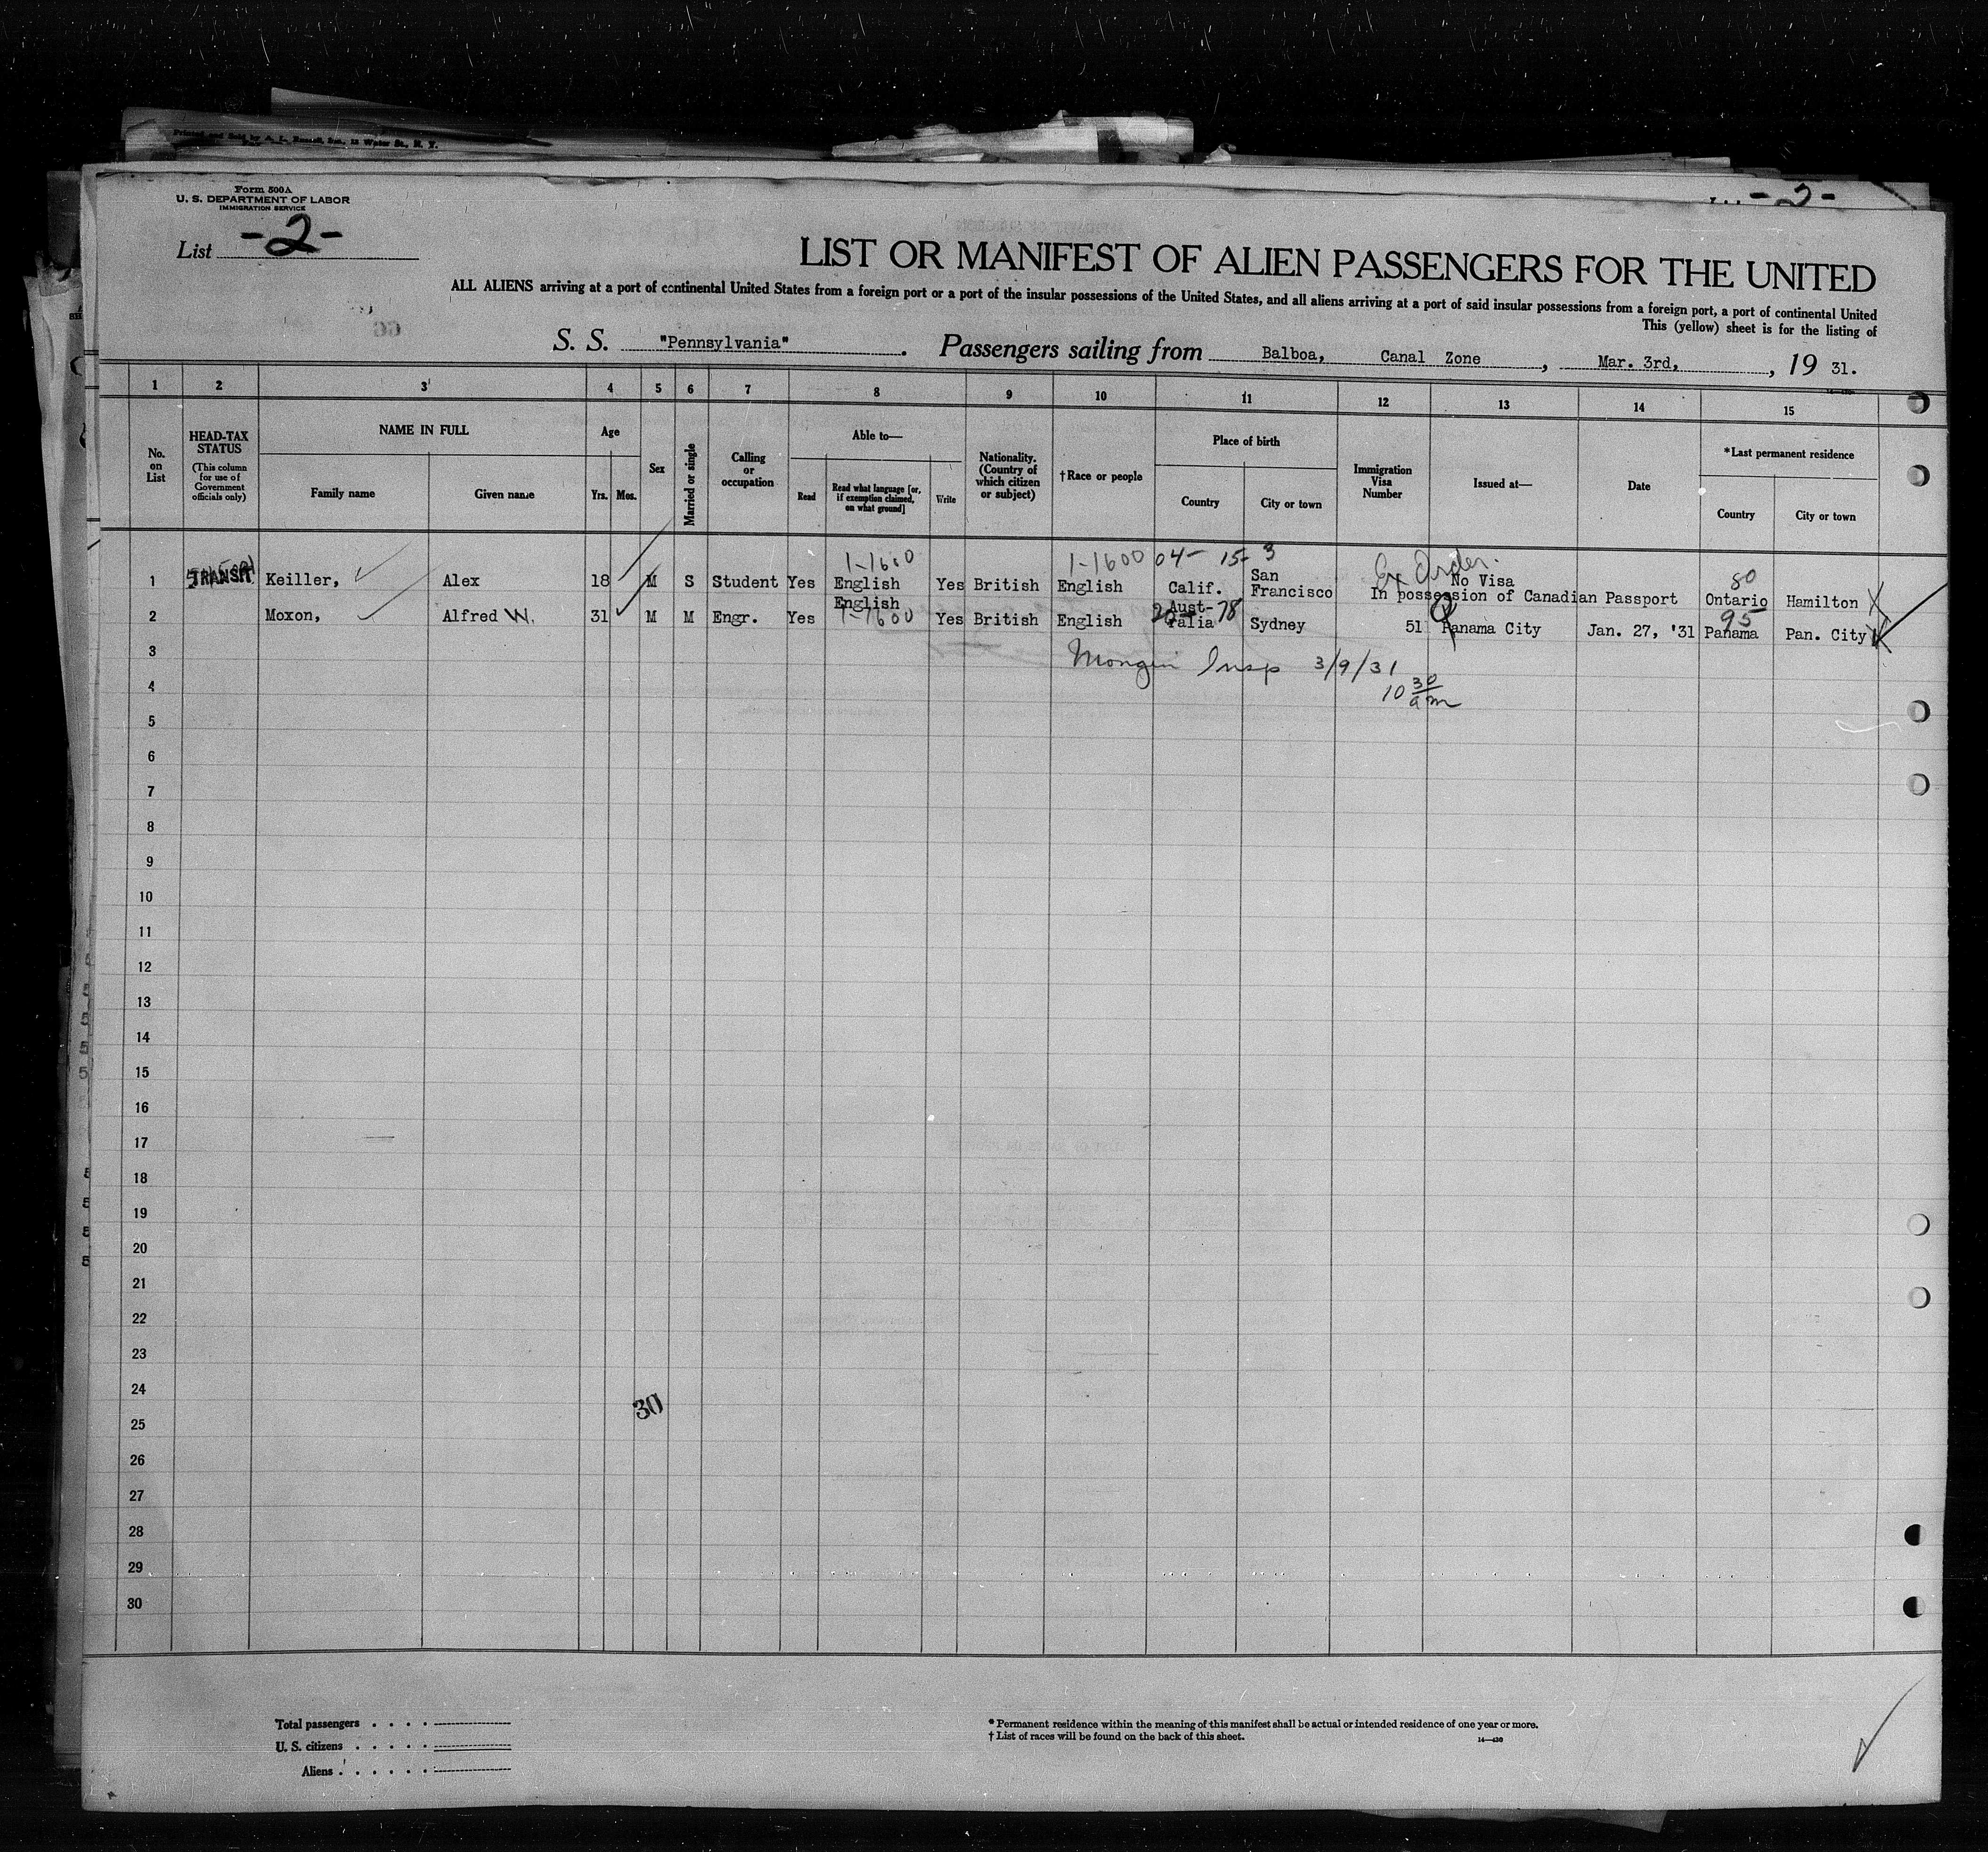 Printed and Sold by A. L. Russell, Inc., 12 Water St., N. Y.
Form 500A
U. S. DEPARTMENT OF LABOR
IMMIGRATION SERVICE
List -2-
-2-
LIST OR MANIFEST OF ALIEN PASSENGERS FOR THE UNITED
ALL ALIENS arriving at a port of continental United States from a foreign port or a port of the insular possessions of the United States, and all aliens arriving at a port of said insular possessions from a foreign port, a port of continental United
This (yellow) sheet is for the listing of
S. S. "Pennsylvania". Passengers sailing from Balboa, Canal Zone, Mar. 3rd, , 19 31.
1 2 3 4 5 6 7 8 9 10 11 12 13 14 15
No. on List
HEAD-TAX STATUS (This column for use of Government officials only)
NAME IN FULL
Family name Given name
Age
Yrs. Mos.
Sex
Married or single
Calling or occupation
Able to—
Read
Read what language [or, if exemption claimed, on what ground]
Write
Nationality. (Country of which citizen or subject)
†Race or people
Place of birth
Country City or town
Immigration Visa Number
Issued at—
Date
*Last permanent residence
Country City or town
1-1600 1-1600 04- 15- 3 Ex Order. 80
1 TRANSIT Keiller, Alex 18 M S Student Yes English Yes British English Calif. San Francisco No Visa In possession of Canadian Passport Ontario Hamilton X
2 Moxon, Alfred W. 31 M M Engr. Yes English 1-1600 Yes British English Australia 78 Sydney 51 Panama City Jan. 27, '31 95 Panama Pan. City
3 Insp 3/9/31
4 10 30 am
5
6
7
8
9
10
11
12
13
14
15
16
17
18
19
20
21
22
23
24
30
25
26
27
28
29
30
Total passengers . . . .
U. S. citizens . . . . .
Aliens . . . . . .
* Permanent residence within the meaning of this manifest shall be actual or intended residence of one year or more.
† List of races will be found on the back of this sheet.
14—430